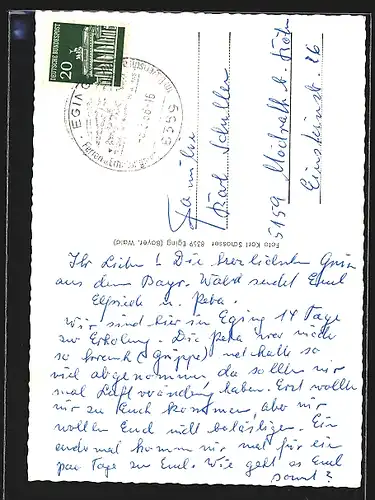 DEUTSCHE BUNDESPOST
20
EGING
8359
Familie
Karl Schuller
5159 Mödrath b. Köln
Einsteinstr. 26
Foto Karl Schosser 8359 Eging (Bayer. Wald)
Ihr Lieben! Die herzlichsten Grüße
aus dem Bayr. Wald sendet Euch
Elfriede u. Petra.
Wir sind hier in Eging 14 Tage
zur Erholung. Die Petra war noch
so krank (Grippe) und hatte so
viel abgenommen da sollten wir
mal Luftveränderung haben. Erst wollten
wir zu Euch kommen, aber wir
wollen Euch nicht belästigen. Ein
andermal kommen wir mal für ein
paar Tage zu Euch. Wie geht es Euch
sonst?